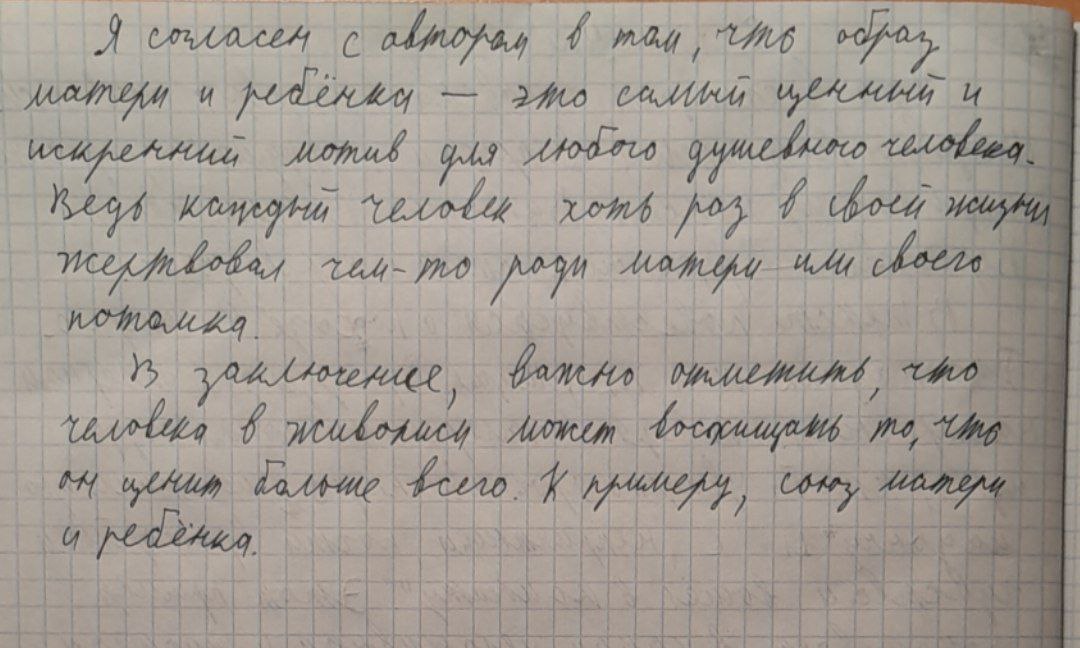 Я согласен с автором в том, что образ
матери и ребёнка — это самый ценный и
искренний мотив для любого душевного человека.
Ведь каждый человек хоть раз в своей жизни
жертвовал чем-то ради матери или своего
потомка.
В заключение, важно отметить, что
человека в живописи может восхищать то, что
он ценит больше всего. К примеру, союз матери
и ребёнка.